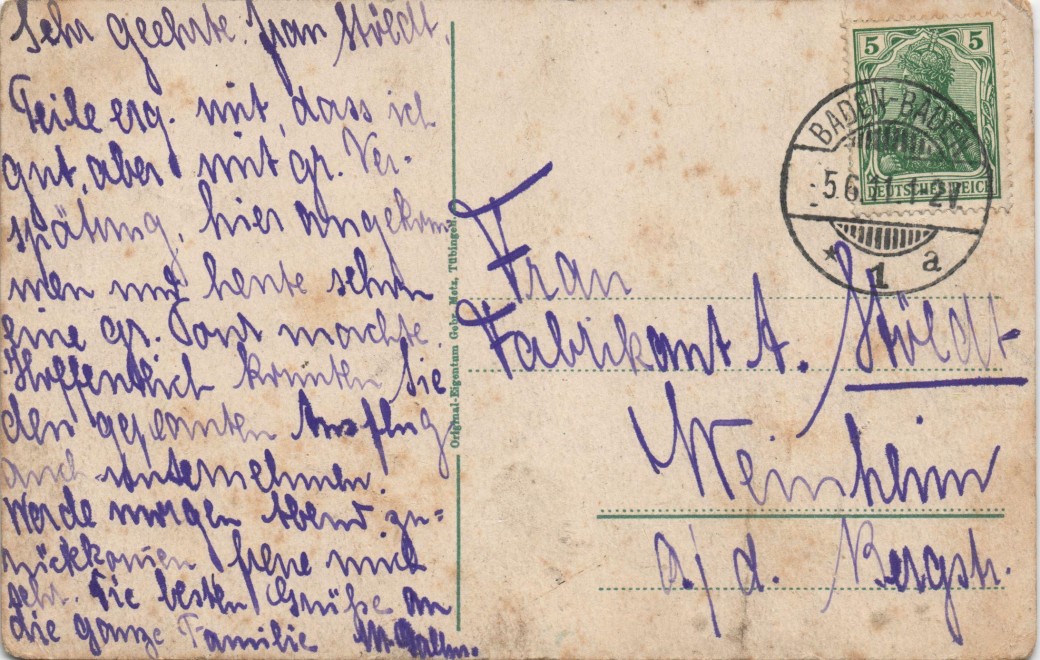 Sehr geehrte Frau Stöldt.
Teile erg. mit, dass ich
gut, aber mit gr. Ver-
spätung, hier angekom-
men und heute schon
eine gr. Tour machte.
Hoffentlich konnten Sie
den geplanten Ausflug
auch unternehmen.
Werde morgen Abend zu=
rückkommen freue mich
sehr. Die besten Grüße an
die ganze Familie
Original-Eigentum Gebr. Metz, Tübingen.
5 5
DEUTSCHES REICH
BADEN-BADEN
5.6.11. 1-2N.
* 1 a
Frau
Fabrikant A. Stöldt
Weinheim
a/d. Bergstr.